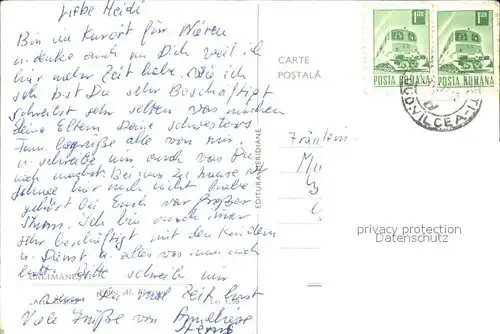 Liebe Heidi
Bin im Kurort für Nieren
u. denke auch an Dich weil ich
hier mehr Zeit habe. Wie ich
seh bist Du sehr Beschäftigt
schreibst sehr selten was machen
deine Eltern Deine schwesters
Fam. begrüße alle von mir
u. schreibe mir auch was Du
noch machst. Bei uns zu hause ist
schnee hier noch nicht habe
gehört bei Euch war großer
Sturm. Ich bin auch immer
sehr beschäftigt mit den Kindern
u. Dienst u. alles was man noch
hatte. Bitte schreib mir
wenn Du mal Zeit hast
Viele Grüße von Anneliese
CĂLIMĂNEȘTI
CARTE
POSTALĂ
EDITURA MERIDIANE
1 LEU
POSTA ROMANA
1 LEU
POSTA ROMANA
VÎLCEA
Fräulein
privacy protection
Datenschutz